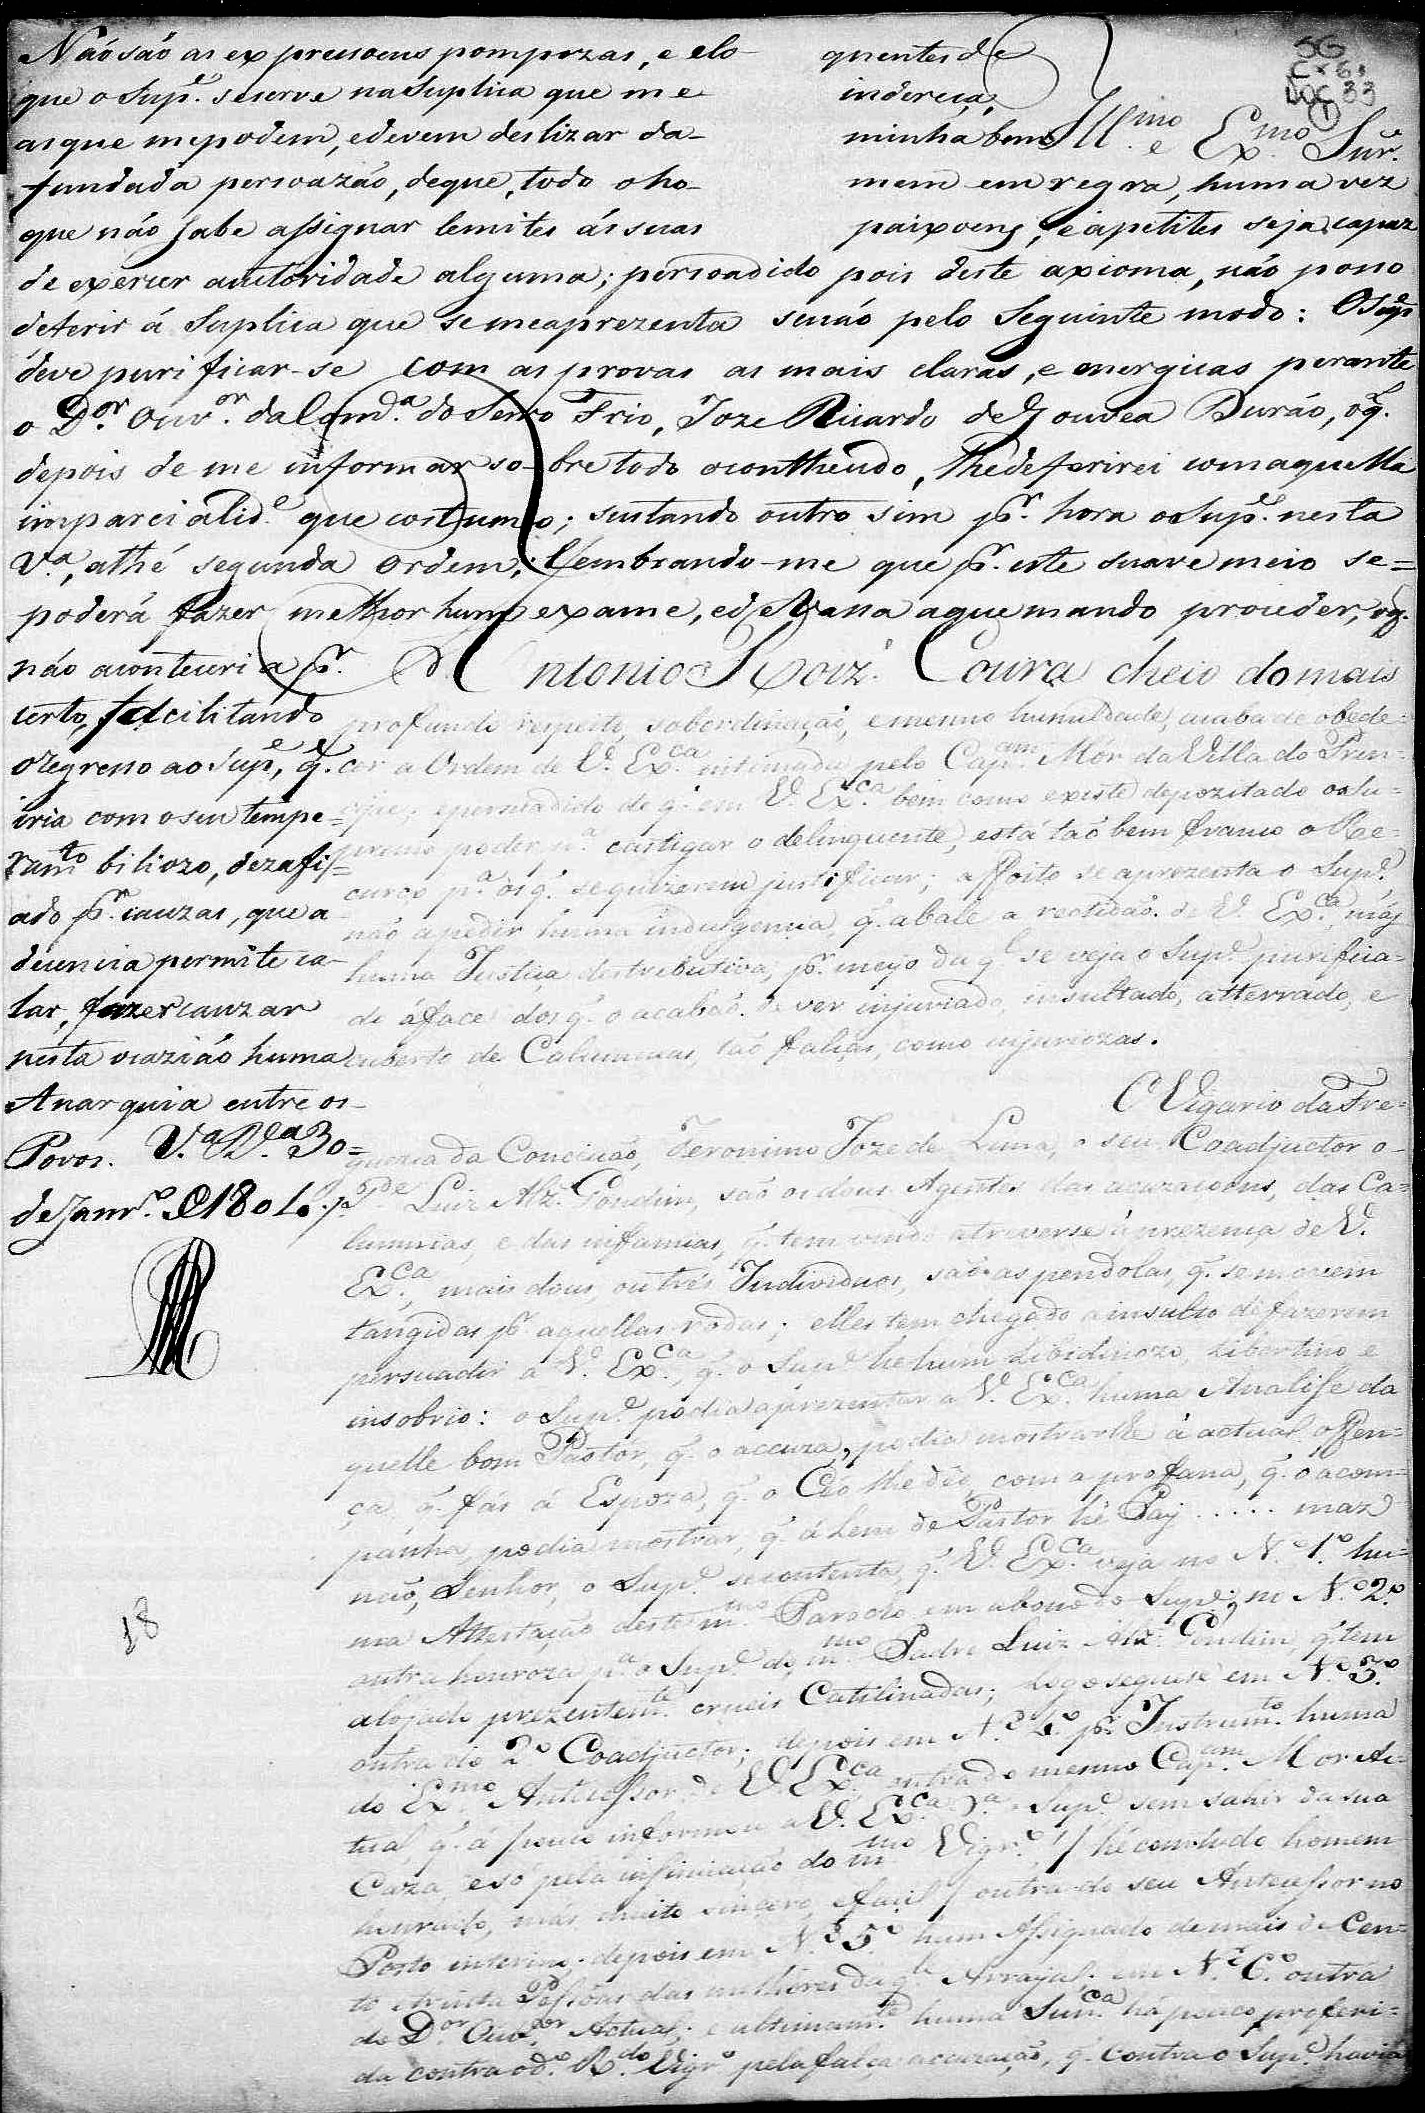 SG
Cx 61
DOC 33
1
Não são as expressoens pompozas, e elo- quentes de
que o Supe. se serve na Suplica que me indereça,
as que me podem, e devem deslizar da- minha bem
fundada persoazão, de que, todo o ho- mem em regra, huma vez
que não sabe assignar lemites ás suas paixoens, e apetites seja capaz
de exercer auctoridade alguma; persoadido pois deste axioma, não posso
deferir á Suplica que se me aprezenta senão pelo Seguinte modo: O Supe
deve purificar-se com as provas as mais claras, e energicas perante
o Dor. Ouvor. da Comca. do Serro Frio, Joze Ricardo de Gouvea Durão, o q.
depois de me informar sobre todo o conthendo, lhe deferirei com aquella
imparcialide. que costumo; sustando outro sim pr. hora o Supe. nesta
Va., athé segunda ordem; lembrando-me que pr. este suave meio se=
poderá fazer melhor hum exame, e devassa a que mando proceder, o q.
não aconteceria pr.
certo, facilitando
o regresso ao Supe, q.
iria com o seu tempe=
ramto biliozo, dezafi-
ado pr. cauzas, que a
decencia permite ca-
lar, fazer cauzar
nesta ocazião huma
Anarquia entre os-
Povos. Va. Ra. 30=
de Janro. de 1804.
Illmo. e Exmo. Snr.
Antonio Roiz. Coura cheio do mais
profundo respeito, sobordinação, e mesmo humildade, acaba de obede-
cer a Ordem de V. Exca. intimada pelo Capam. Mor da Villa do Prin-
cipe; e persuadido de q. em V. Exca. bem como existe depozitado o su-
premo poder pa. castigar o delinquente, está taõ bem franco o Re-
curço pa. os q. se quizerem justificar; affoito se aprezenta o Supe.
naõ a pedir huma indulgencia q. abale a rectidaõ de V. Exca., más
huma Justiça destrebutiva, pr. meyo da ql. se veja o Supe. purifica-
do á face dos q. o acabaõ de ver injuriado, insultado, atterrado, e
cuberto de Calumnias, taõ falças, como injuriozas.
O Vigario da Fre-
guezia da Conceicão, Jeronimo Joze de Luna, o seu Coadjuctor o-
Pe. Luiz Alz. Gondim, saõ os dous Agentes das acuzacoens, das Ca-
lumnias, e das infamias, q. tem vindo atreverse á prezença de V.
Exca., mais dous, ou tres Individuos, saõ as pendolas, q. se movem
tangidas pr. aquellas rodas; elles tem chegado a insulto de fazerem
persuadir a V. Exca., q. o Supe. he hum Libidinozo Libertino e
insobrio: o Supe. podia aprezentar a V. Exca. huma Analise da
quelle bom Pastor, q. o accuza, podia mostrar lhe a actual offen-
ça q. fás á Espoza, q. o Céo lhe deo, com a profana, q. o acom-
panha, podia mostrar, q. á lem de Pastor hé Pay ..... mas
naõ, Senhor, o Supe. se contenta q. V. Exca. veja no No. 1o. hu-
ma Attestaçaõ deste mmo. Paroco em abono do Supe.; no No. 2o.
outra honroza pa. o Supe. do mmo Padre Luiz Alz. Gondim, q. tem
alojado prezentemte. crueis Catilinadas; logo seguese em No. 3o.
outra do 2o Coadjuctor; depois em No. 4o pr. Instrumto. huma
do Exmo Antecessor de V. Exca outra do mesmo Capam. Mor Ac-
tual, q. á pouco informou a V. Exca. Supe. sem sahir da sua
Caza, e só pela insinuação do mmo Vigro. / hé comtudo homem
honrado, más muito sincero, e facil / outra do seu Antecessor no
Posto interino. depois em No. 5o. hum Assignado de mais de Cen-
to trinta Pessoas das milhores daqle Arrayal; em No. 6o. outra
do Dor Ouvor. Actual; e ultimamte. huma Sunca há pouco proferi-
da contra o do. Rdo. Vigro pela falça accuzação, q. contra o Supe. havia
18